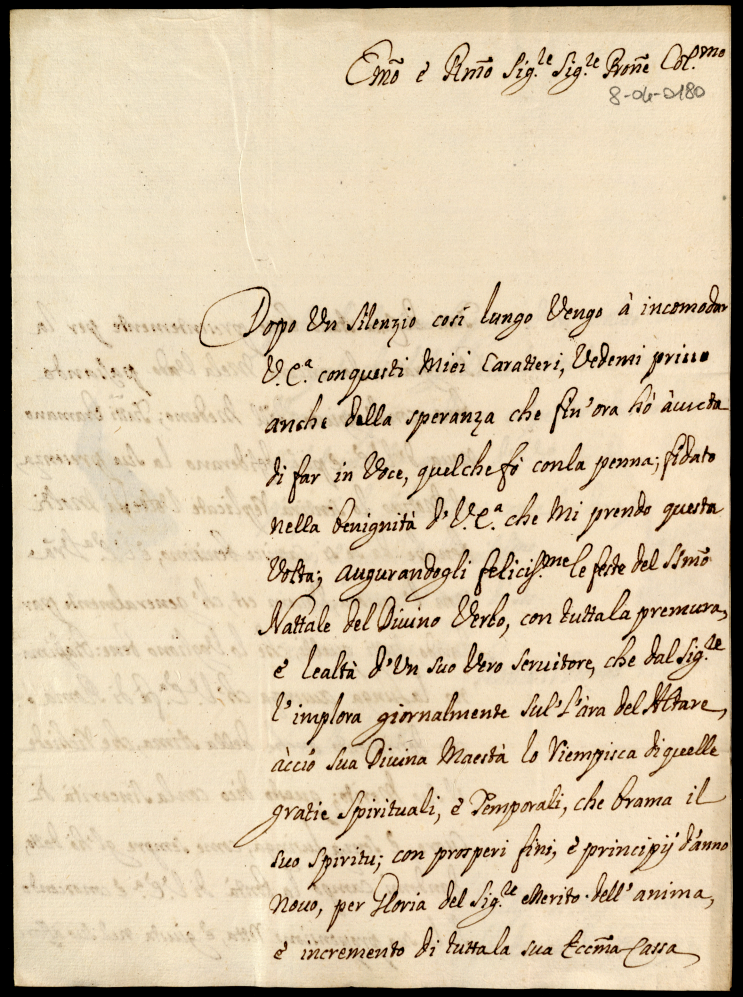 Emõ è Rmõ Sig.le Sig.le Prõne Col.mo
8-04-0180
Dopo Un Silenzio così lungo Vengo à incomodar
V.E.a conquesti Miei Caratteri, Vedemi privo
anche della speranza che fin'ora hò àvuta
di far in Voce, quelche fò conla penna; fidato
nella benignità d'V.E.a che Mi prendo questa
Volta; augurandogli feliciss.me le feste del Ssmõ
Nattale del Divino Verbo, con tuttala premura,
è lealtà d'Un suo Vero servitore, che dal Sig.le
l'implora giornalmente sul'L'ara del Altare,
àcciò sua Divina Maestà lo Riempisca di quelle
gratie Spirituali, è Temporali, che brama il
suo Spiritu; con prosperi fini, è principij d'anno
Novo, per Gloria del Sig.le eMerito dell'anima,
è incremento di tuttala sua Eccm̃a Cassa